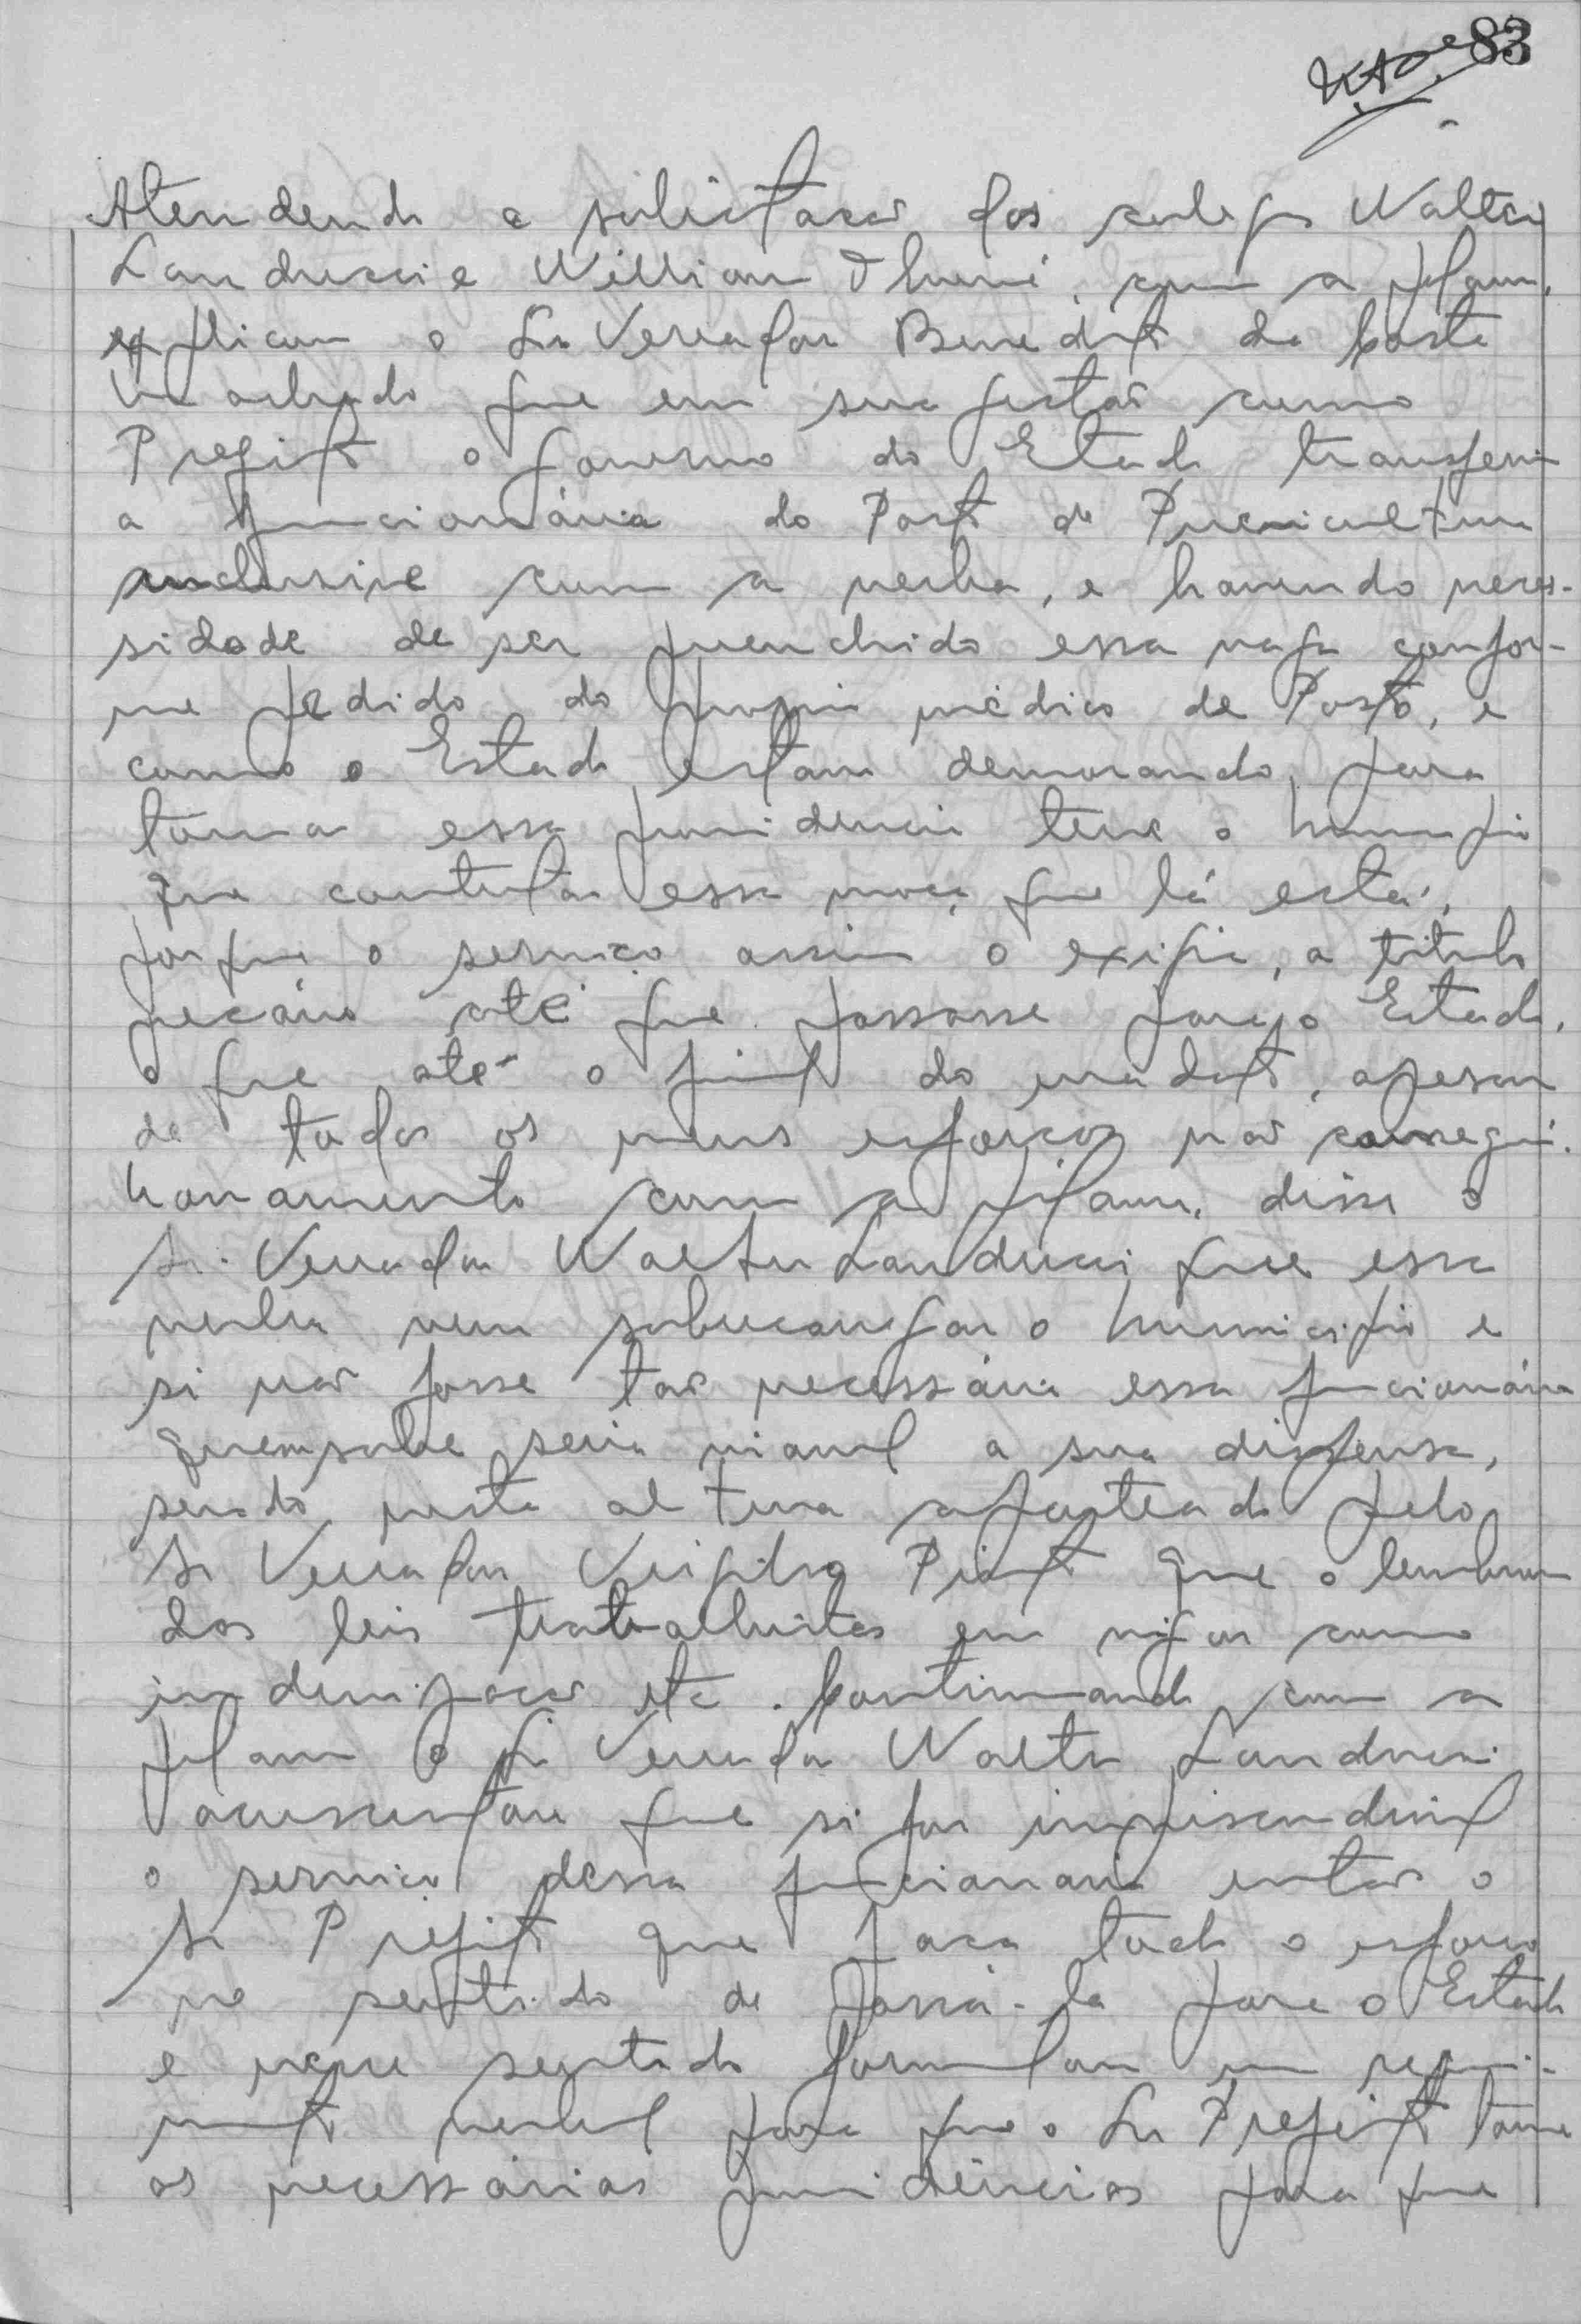 83
Atendendo a solicitação dos colegas Walter
Landucci e William Thomé, com a palavra,
explicou o Sr Vereador Benedito da Costa
Machado que em sua gestão como
Prefeito o governo do Estado transferiu
a funcionária do Posto de Puericultura
inclusive com a verba, e havendo neces-
sidade de ser preenchida essa vaga confor-
me pedido do proprio médico de Posto, e
como o Estado estava demorando para
tomar essa providencia teve o Municipio
que contratar essa moça que lá está,
porque o serviço assim o exigia, a titulo
precário até que passasse para o Estado,
o que até o final do mandato, apesar
de todos os meus esforços não consegui.
Novamente com a palavra, disse o
Sr. Vereador Walter Landucci que essa
verba vem sobrecarregar o Municipio e
si não fosse tão necessária essa funcionária
quem sabe seria viavel a sua dispensa,
sendo nesta altura aparteado pelo
Sr Vereador Virgilio Pinto que o lembrou
das leis trabalhistas em vigor como
indenização etc. Continuando com a
palavra o Sr Vereador Walter Landucci
acrescentou que si for imprescindivel
o serviço dessa funcionaria então o
Sr Prefeito que faça todo o esforço
no sentido de passá-la para o Estado
e nesse sentido formulou um requeri-
mento verbal para que o Sr Prefeito tome
as necessárias providências para que